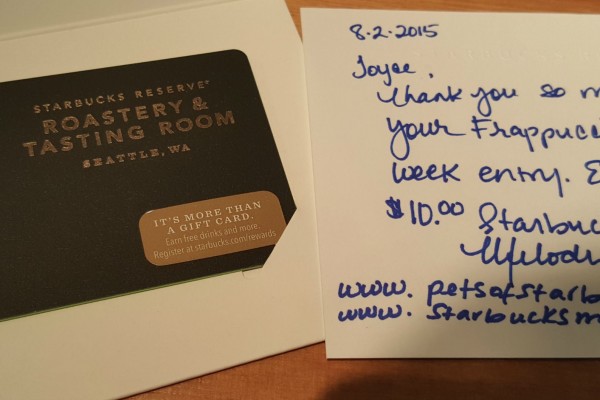 STARBUCKS RESERVE®
ROASTERY &
TASTING ROOM
SEATTLE, WA
IT'S MORE THAN
A GIFT CARD.
Earn free drinks and more.
Register at starbucks.com/rewards
8.2.2015
Joyce,
Thank you so m
your Frappucci
week entry. E
$10.00 Starbuc
Melod
www. petsofstarb
www. starbucksm